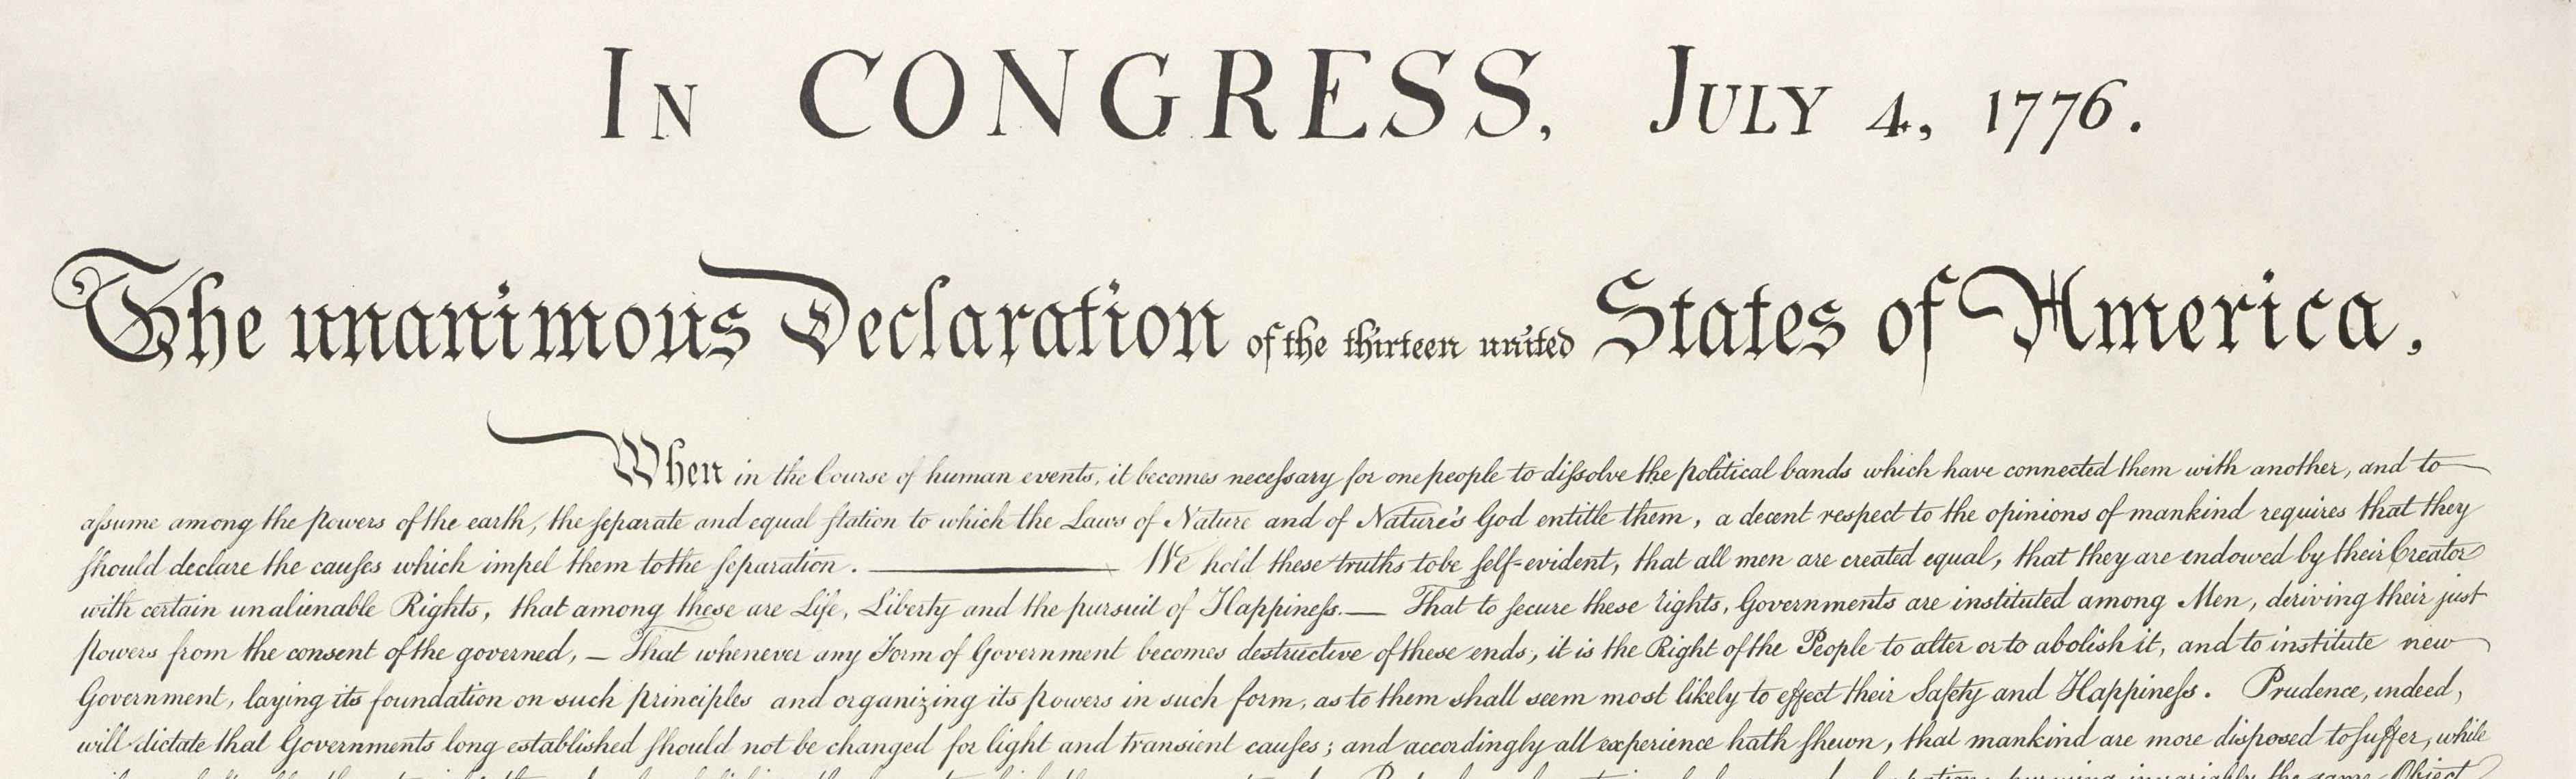 In CONGRESS, July 4, 1776.
The unanimous Declaration of the thirteen united States of America,
When in the Course of human events, it becomes neceſsary for one people to diſsolve the political bands which have connected them with another, and to
aſsume among the powers of the earth, the ſeparate and equal ſtation to which the Laws of Nature and of Nature's God entitle them, a decent respect to the opinions of mankind requires that they
ſhould declare the cauſes which impel them to the ſeparation. ——— We hold these truths to be ſelf-evident, that all men are created equal, that they are endowed by their Creator
with certain unalienable Rights, that among these are Life, Liberty and the pursuit of Happineſs.— That to ſecure these rights, Governments are instituted among Men, deriving their just
powers from the consent of the governed, — That whenever any Form of Government becomes destructive of these ends, it is the Right of the People to alter or to abolish it, and to institute new
Government, laying its foundation on such principles and organizing its powers in such form, as to them shall seem most likely to effect their Safety and Happineſs. Prudence, indeed,
will dictate that Governments long established ſhould not be changed for light and transient cauſes; and accordingly all experience hath ſhewn, that mankind are more disposed to ſuffer, while